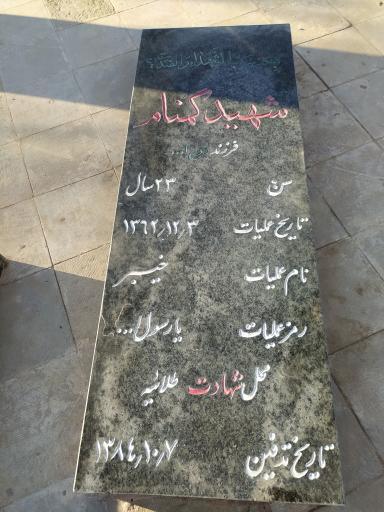 شهید گمنام
فرزند روح ا...
سن ۲۳ سال
تاریخ عملیات ۱۳۶۲/۱۲/۳
نام عملیات خیبر
رمز عملیات یا رسول ا...
محل شهادت طلائیه
تاریخ تدفین ۱۳۸۴/۱۰/۷